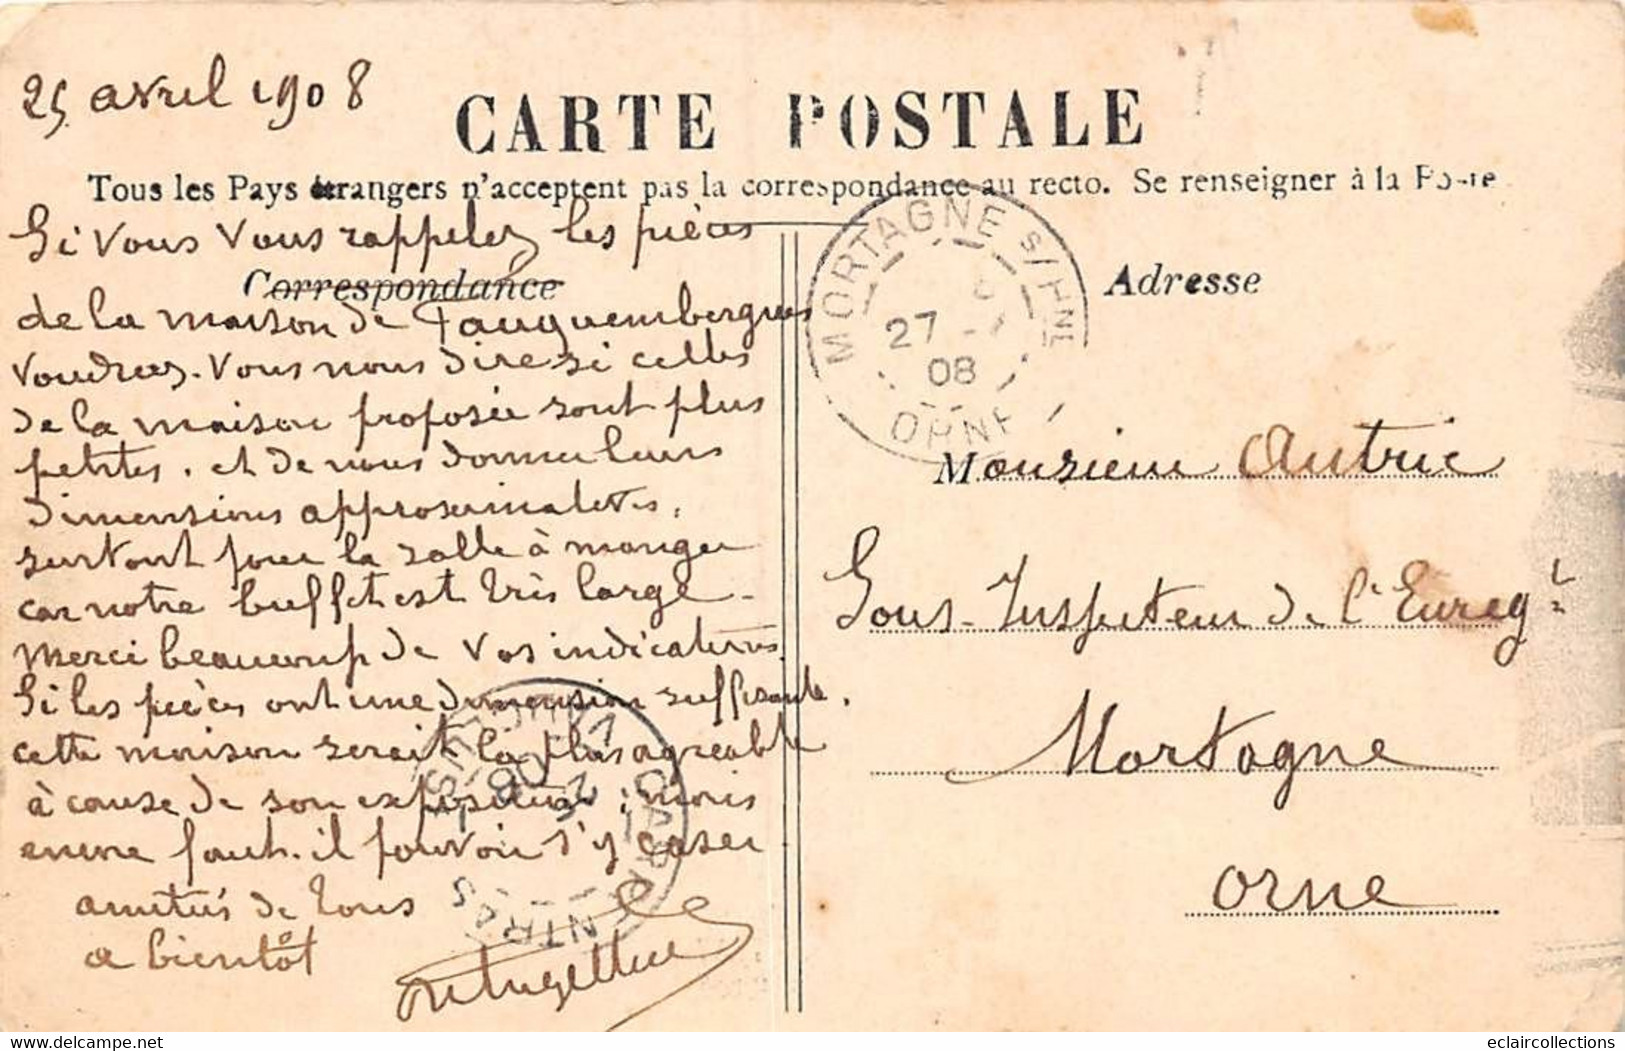 25 avril 1908
CARTE POSTALE
Tous les Pays étrangers n'acceptent pas la correspondance au recto. Se renseigner à la Poste
Si vous vous rappelez les pièces
Correspondance
de la maison de Fauquembergues
voudrez-vous nous dire si celles
de la maison proposée sont plus
petites, et de nous donner leurs
dimensions approximatives,
surtout pour la salle à manger
car notre buffet est très large -
Merci beaucoup de vos indications.
Si les pièces ont une dimension suffisante,
cette maison serait la plus agréable
à cause de son exposition ; mais
encore faut-il pouvoir s'y caser
amitiés de tous
a bientôt
MORTAGNE S/HNE
27
08
ORNE
CARPENTRAS
VAUCLUSE
08
Adresse
Monsieur Autric
Sous-Inspecteur de l'Enreg.t
Mortagne
Orne
eclaircollections